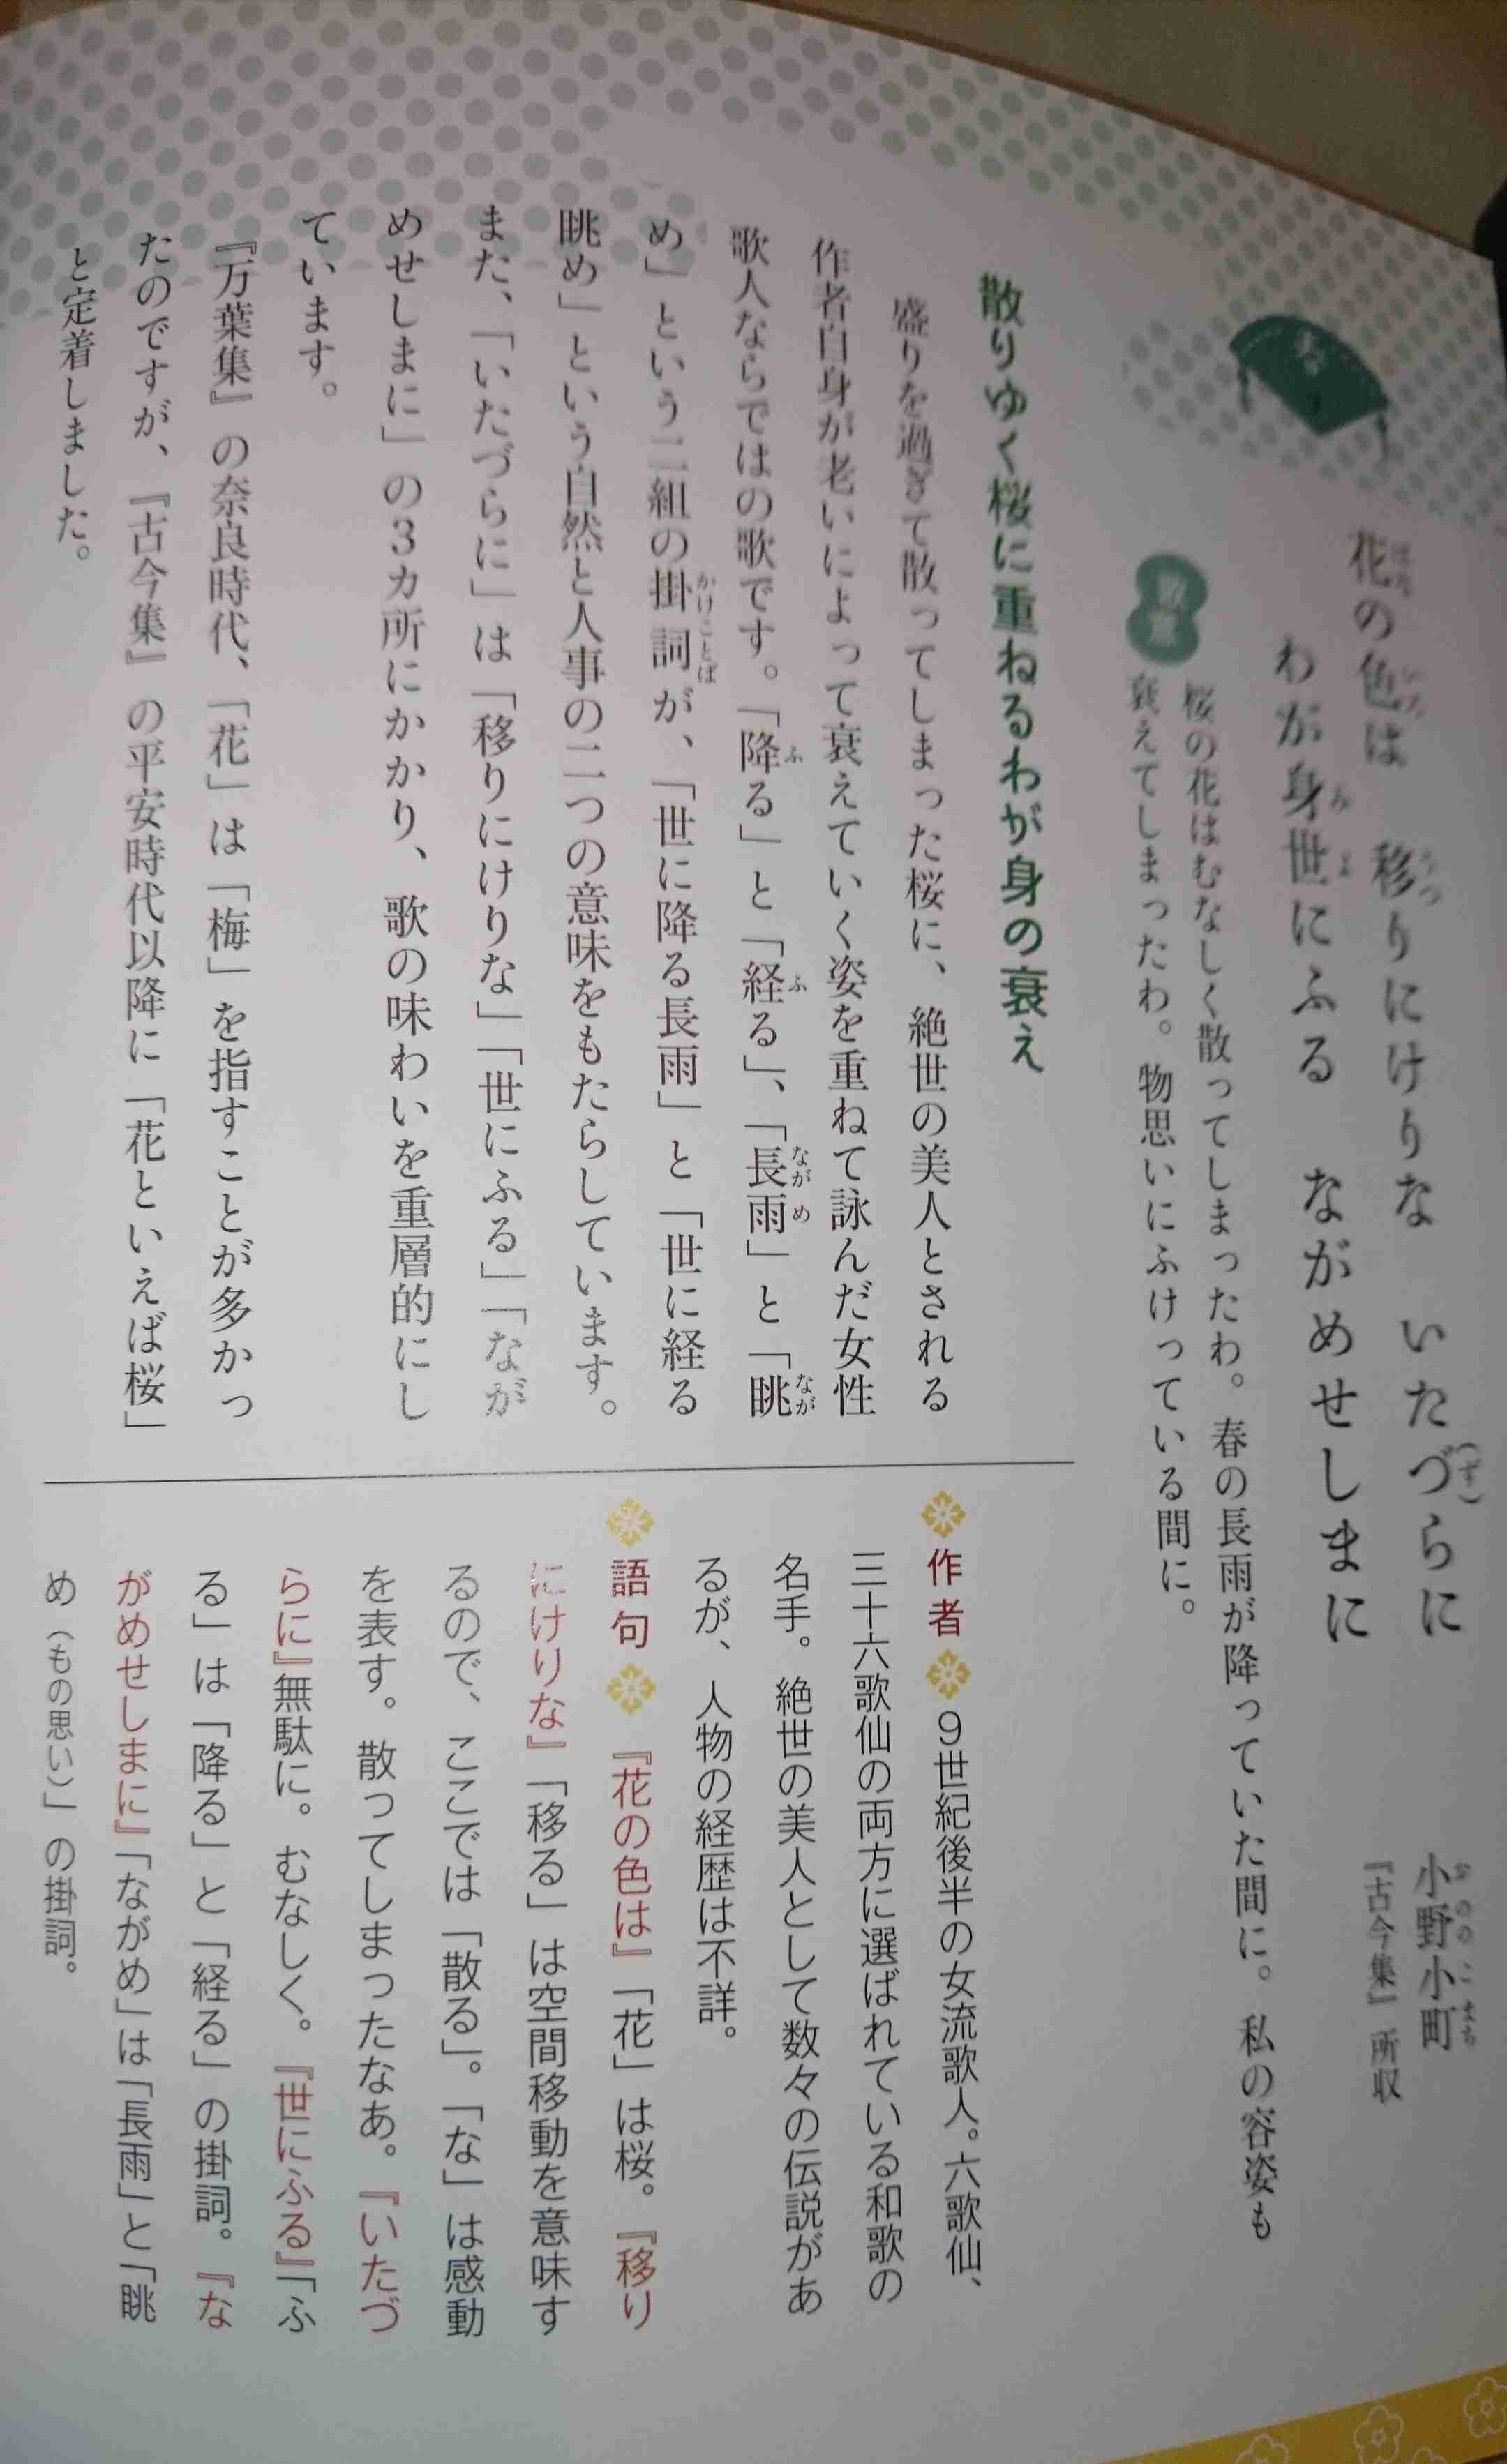 花の色は 移りにけりな いたづらに
わが身世にふる ながめせしまに
小野小町
『古今集』所収
桜の花はむなしく散ってしまったわ。春の長雨が降っていた間に。私の容姿も
衰えてしまったわ。物思いにふけっている間に。
散りゆく桜に重ねるわが身の衰え
盛りを過ぎて散ってしまった桜に、絶世の美人とされる
作者自身が老いによって衰えていく姿を重ねて詠んだ女性
歌人ならではの歌です。「降る」と「経る」、「長雨」と「眺
め」という二組の掛詞が、「世に降る長雨」と「世に経る
眺め」という自然と人事の二つの意味をもたらしています。
また、「いたづらに」は「移りにけりな」「世にふる」「なが
めせしまに」の3カ所にかかり、歌の味わいを重層的にし
ています。
『万葉集』の奈良時代、「花」は「梅」を指すことが多かっ
たのですが、『古今集』の平安時代以降に「花といえば桜」
と定着しました。
作者 9世紀後半の女流歌人。六歌仙、
三十六歌仙の両方に選ばれている和歌の
名手。絶世の美人として数々の伝説があ
るが、人物の経歴は不詳。
語句 『花の色は』「花」は桜。『移り
にけりな』「移る」は空間移動を意味す
るので、ここでは「散る」。「な」は感動
を表す。散ってしまったなあ。『いたづ
らに』無駄に。むなしく。『世にふる』「ふ
る」は「降る」と「経る」の掛詞。『な
がめせしまに』「ながめ」は「長雨」と「眺
め（もの思い）」の掛詞。